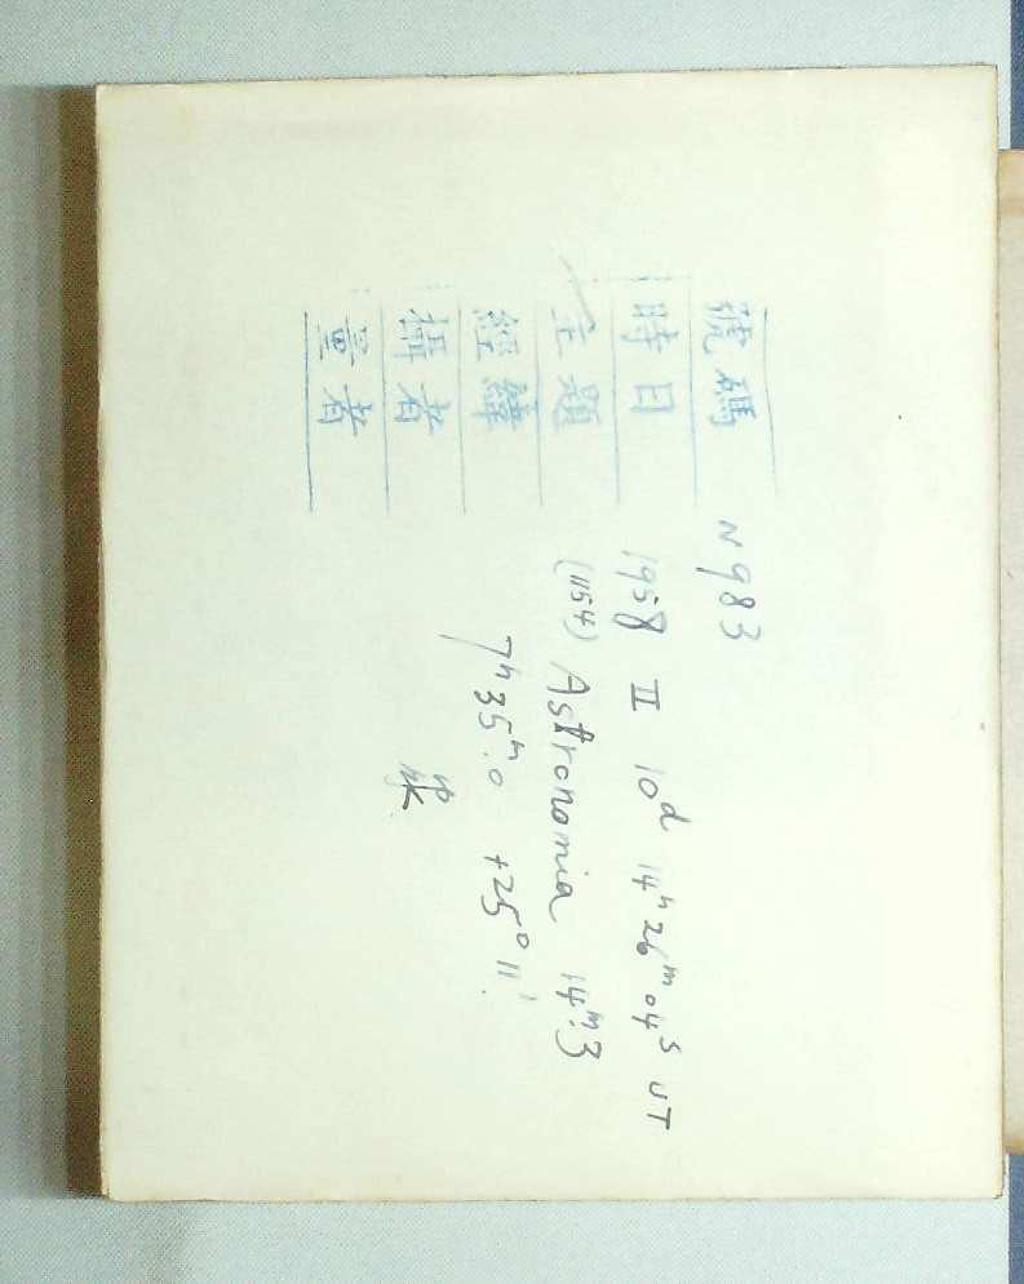 號碼 N983
時日 1958 II 10d 14h26m04s UT
主題 (1154) Astronomia 14m.3
經緯 7h35m.0 +25°11'
攝者
量者